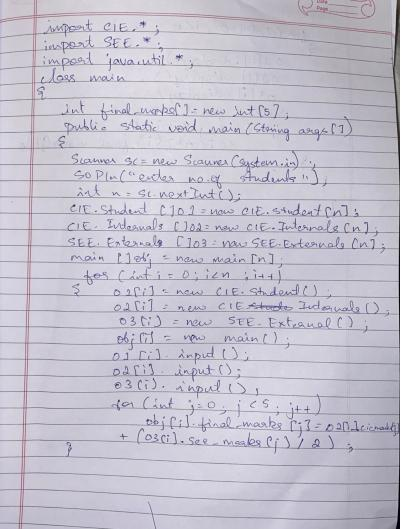 import CIE.*;
import SEE.*;
import java.util.*;
class main
{
int final_marks[]=new int[5];
public static void main(String args[])
{
Scanner sc=new Scanner(system.in);
SOPln("enter no.of students");
int n=sc.nextInt();
CIE.Student []O1=new CIE.student[n];
CIE.Internals []O2=new CIE.Internals[n];
SEE.Externals []O3=new SEE.Externals[n];
main []obj=new main[n];
for(int i=0;i<n;i++)
{
O2[i]=new CIE.Student();
O2[i]=new CIE Internals();
O3[i]=new SEE.External();
obj[i]=new main();
O1[i].input();
O2[i].input();
O3(i).input();
for(int j=0;j<5;j++)
obj[i].final_marks[j]=O2[i]
+(O3(i).see_marks[j)/2);
}